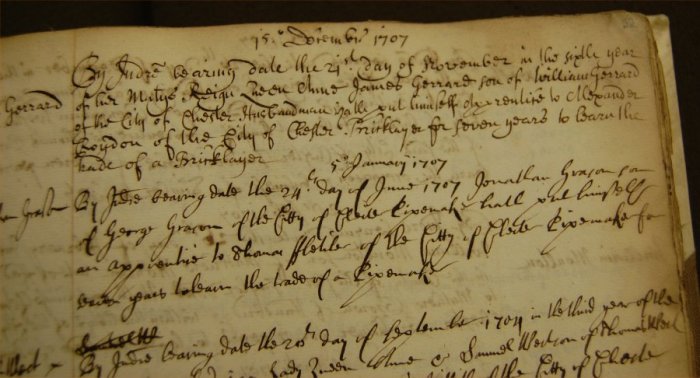 15o December 1707
Gerrard
By Indre bearing date the 21st day of November in the sixth year
of her Matys Reign Queen Anne James Gerrard son of William Gerrard
of the City of Chester Husbandman hath put himself Apprentice to Alexander
Roydon of the City of Chester Bricklayer for seven years to learn the
trade of a Bricklayer
5o January 1707
By Indre bearing date the 24th day of June 1707 Jonathan Gracom son
of George Gracom of the Citty of Chester Pipemaker hath put himself
an apprentice to Thomas ffletcher of the Citty of Chester Pipemaker for
seven years to learn the trade of a Pipemaker
By Indre bearing date the 20th day of September 1704 in the third year of the
Lady Queen Anne Samuel Weston of Thomas West
of the Citty of Chester